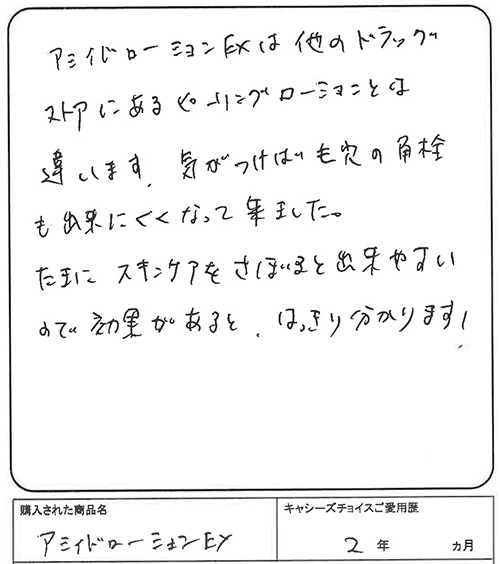 アミノイドローションEXは他のドラッグ
ストアにあるピーリングローションとは
違います。気がつけば毛穴の角栓
も出来にくくなって来ました。
たまにスキンケアをさぼると出来やすい
ので効果があると、はっきり分かります!
購入された商品名
アミノイドローションEX
キャシーズチョイスご愛用歴
2年 カ月